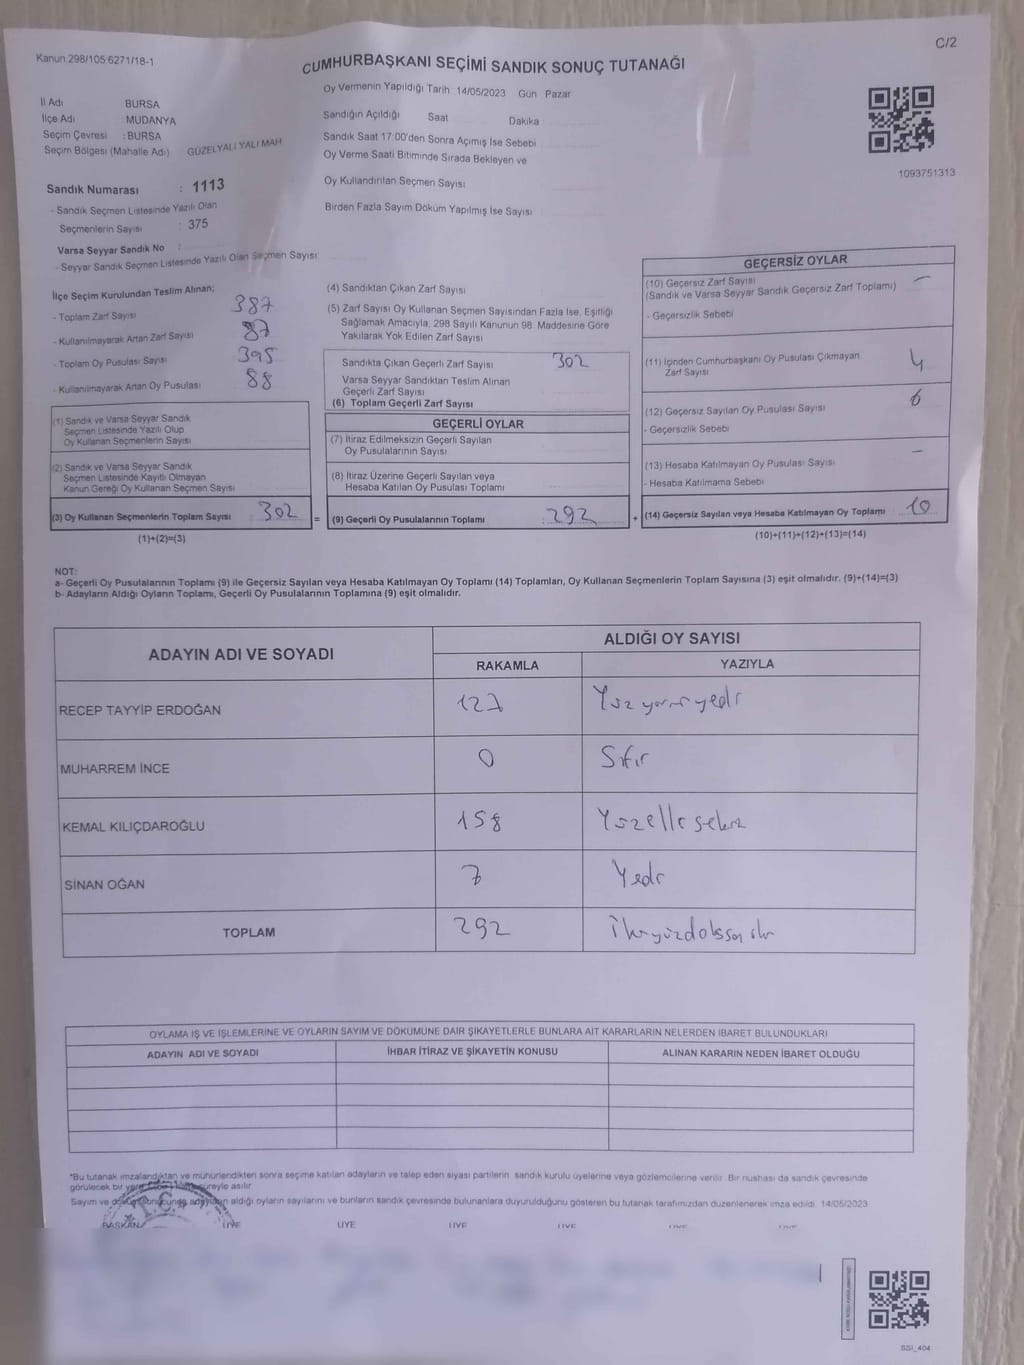 C/2
Kanun.298/105.6271/18-1
CUMHURBAŞKANI SEÇİMİ SANDIK SONUÇ TUTANAĞI
Oy Vermenin Yapıldığı Tarih 14/05/2023 Gün Pazar
İl Adı BURSA
İlçe Adı MUDANYA
Seçim Çevresi : BURSA
Seçim Bölgesi (Mahalle Adı) GÜZELYALI YALI MAH
Sandığın Açıldığı Saat Dakika
Sandık Saat 17:00'den Sonra Açımış İse Sebebi
Oy Verme Saati Bitiminde Sırada Bekleyen ve
Oy Kullandırılan Seçmen Sayısı
Birden Fazla Sayım Döküm Yapılmış İse Sayısı
1093751313
Sandık Numarası : 1113
- Sandık Seçmen Listesinde Yazılı Olan
Seçmenlerin Sayısı : 375
Varsa Seyyar Sandık No :
- Seyyar Sandık Seçmen Listesinde Yazılı Olan Seçmen Sayısı
İlçe Seçim Kurulundan Teslim Alınan;
- Toplam Zarf Sayısı 387
- Kullanılmayarak Artan Zarf Sayısı 87
- Toplam Oy Pusulası Sayısı 395
- Kullanılmayarak Artan Oy Pusulası 88
(1) Sandık ve Varsa Seyyar Sandık
Seçmen Listesinde Yazılı Olup
Oy Kullanan Seçmenlerin Sayısı
(2) Sandık ve Varsa Seyyar Sandık
Seçmen Listesinde Kayıtlı Olmayan
Kanun Gereği Oy Kullanan Seçmen Sayısı
(3) Oy Kullanan Seçmenlerin Toplam Sayısı 302 =
(1)+(2)=(3)
(4) Sandıktan Çıkan Zarf Sayısı
(5) Zarf Sayısı Oy Kullanan Seçmen Sayısından Fazla İse, Eşitliği
Sağlamak Amacıyla, 298 Sayılı Kanunun 98. Maddesine Göre
Yakılarak Yok Edilen Zarf Sayısı
Sandıkta Çıkan Geçerli Zarf Sayısı 302
Varsa Seyyar Sandıktan Teslim Alınan
Geçerli Zarf Sayısı
(6) Toplam Geçerli Zarf Sayısı
GEÇERLİ OYLAR
(7) İtiraz Edilmeksizin Geçerli Sayılan
Oy Pusulalarının Sayısı
(8) İtiraz Üzerine Geçerli Sayılan veya
Hesaba Katılan Oy Pusulası Toplamı
(9) Geçerli Oy Pusulalarının Toplamı : 292 +
GEÇERSİZ OYLAR
(10) Geçersiz Zarf Sayısı —
(Sandık ve Varsa Seyyar Sandık Geçersiz Zarf Toplamı)
- Geçersizlik Sebebi
(11) İçinden Cumhurbaşkanı Oy Pusulası Çıkmayan 4
Zarf Sayısı
(12) Geçersiz Sayılan Oy Pusulası Sayısı 6
- Geçersizlik Sebebi
(13) Hesaba Katılmayan Oy Pusulası Sayısı —
- Hesaba Katılmama Sebebi
(14) Geçersiz Sayılan veya Hesaba Katılmayan Oy Toplamı 10
(10)+(11)+(12)+(13)=(14)
NOT:
a- Geçerli Oy Pusulalarının Toplamı (9) ile Geçersiz Sayılan veya Hesaba Katılmayan Oy Toplamı (14) Toplamları, Oy Kullanan Seçmenlerin Toplam Sayısına (3) eşit olmalıdır. (9)+(14)=(3)
b- Adayların Aldığı Oyların Toplamı, Geçerli Oy Pusulalarının Toplamına (9) eşit olmalıdır.
ADAYIN ADI VE SOYADI
ALDIĞI OY SAYISI
RAKAMLA YAZIYLA
RECEP TAYYİP ERDOĞAN 127 Yüz yirmi yedi
MUHARREM İNCE 0 Sıfır
KEMAL KILIÇDAROĞLU 158 Yüzelli sekiz
SİNAN OĞAN 7 Yedi
TOPLAM 292 İkiyüzdoksan iki
OYLAMA İŞ VE İŞLEMLERİNE VE OYLARIN SAYIM VE DÖKÜMÜNE DAİR ŞİKAYETLERLE BUNLARA AİT KARARLARIN NELERDEN İBARET BULUNDUKLARI
ADAYIN ADI VE SOYADI İHBAR İTİRAZ VE ŞİKAYETİN KONUSU ALINAN KARARIN NEDEN İBARET OLDUĞU
*Bu tutanak imzalandıktan ve mühürlendikten sonra seçime katılan adayların ve talep eden siyasi partilerin sandık kurulu üyelerine veya gözlemcilerine verilir. Bir nushası da sandık çevresinde
görülecek bir yere süreyle asılır
Sayım ve döküm sonucunda adayların aldığı oyların sayılarını ve bunların sandık çevresinde bulunanlara duyurulduğunu gösteren bu tutanak tarafımızdan düzenlenerek imza edildi. 14/05/2023
T.C.
BAŞKAN ÜYE ÜYE ÜYE ÜYE ÜYE ÜYE
SSI_404